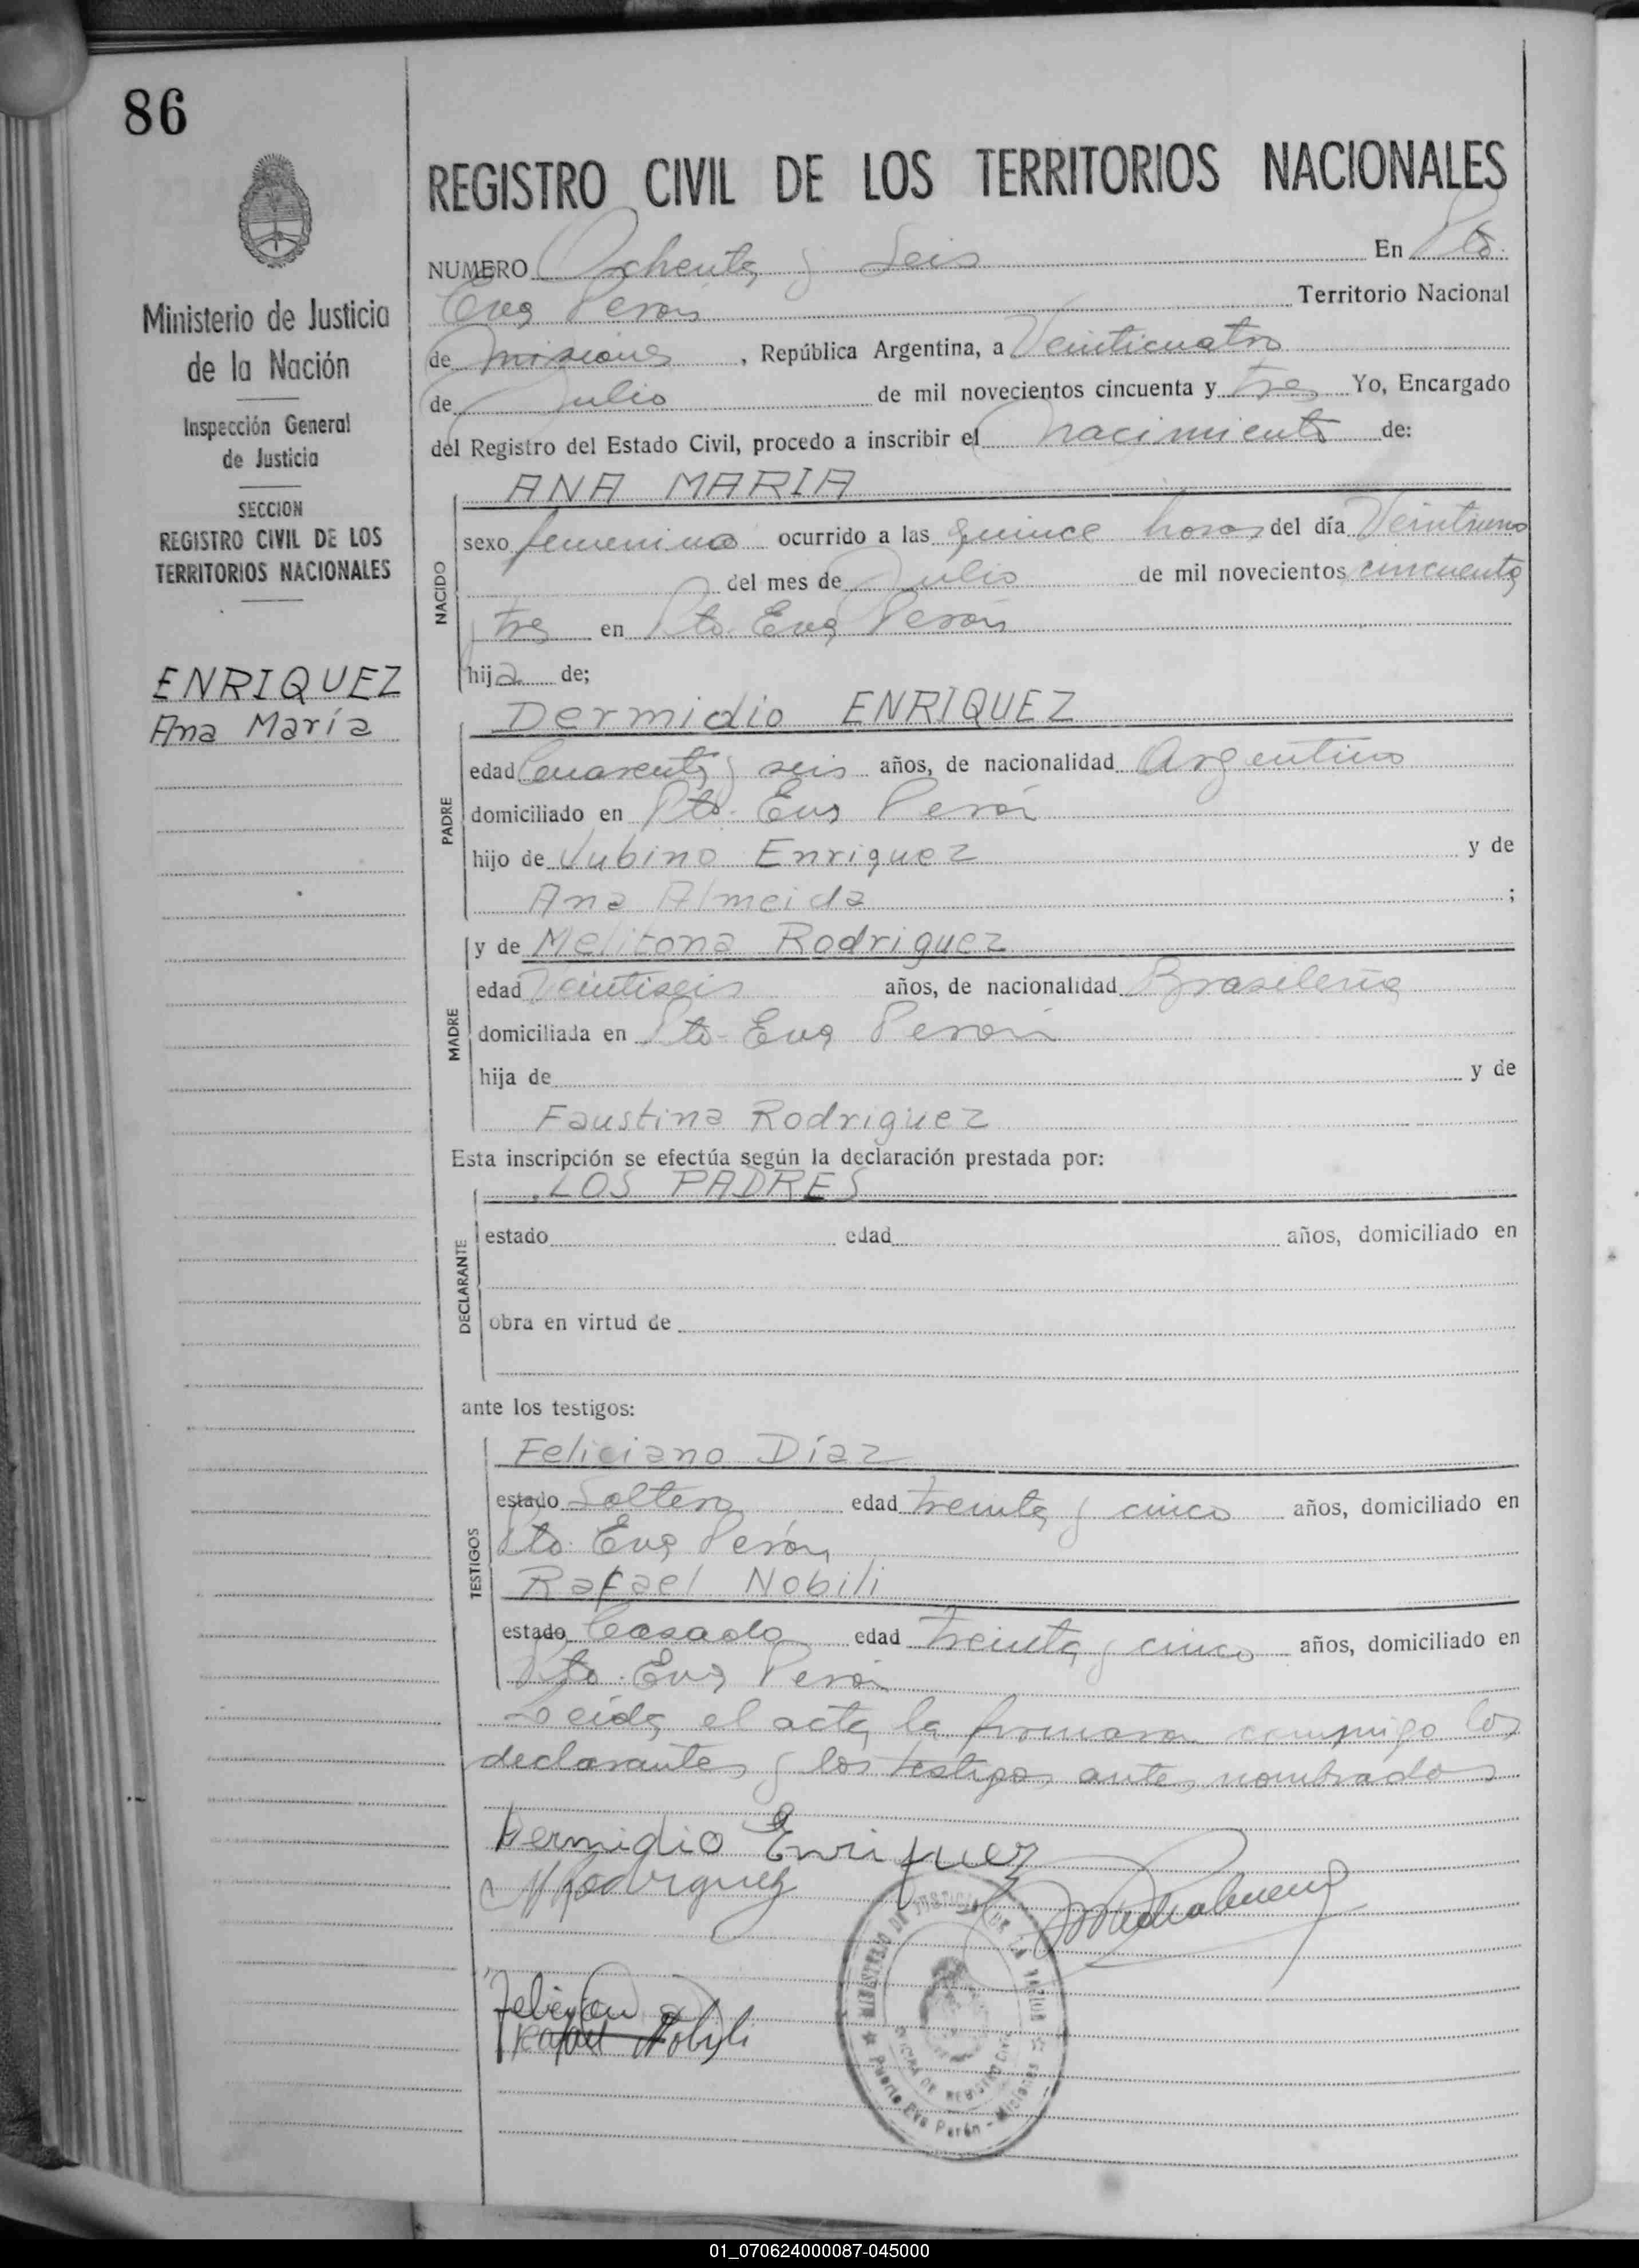 86
REGISTRO CIVIL DE LOS TERRITORIOS NACIONALES
NUMERO Ochenta y Seis En Pto.
Eva Perón Territorio Nacional
de Misiones, República Argentina, a Veinticuatro
de Julio de mil novecientos cincuenta y tres Yo, Encargado
del Registro del Estado Civil, procedo a inscribir el nacimiento de:
Ministerio de Justicia
de la Nación
Inspección General
de Justicia
SECCION
REGISTRO CIVIL DE LOS
TERRITORIOS NACIONALES
ENRIQUEZ
Ana María
NACIDO
ANA MARIA
sexo femenino ocurrido a las quince horas del día Veintiuno
del mes de Julio de mil novecientos cincuenta
y tres en Pto. Eva Perón
hija de;
PADRE
Dermidio ENRIQUEZ
edad Cuarenta y seis años, de nacionalidad Argentino
domiciliado en Pto. Eva Perón
hijo de Jubino Enriquez y de
Ana Almeida ;
MADRE
y de Melitona Rodriguez
edad Veintiseis años, de nacionalidad Brasileña
domiciliada en Pto. Eva Perón
hija de y de
Faustina Rodriguez
Esta inscripción se efectúa según la declaración prestada por:
DECLARANTE
LOS PADRES
estado edad años, domiciliado en
obra en virtud de
ante los testigos:
TESTIGOS
Feliciano Díaz
estado Soltero edad treinta y cinco años, domiciliado en
Pto. Eva Perón
Rafael Nobili
estado Casado edad treinta y cinco años, domiciliado en
Pto. Eva Perón
Leida el acta la firmaron conmigo los
declarantes y los testigos antes nombrados
Dermidio Enriquez
M Rodriguez
Rafael Nobili
MINISTERIO DE JUSTICIA DE LA NACION
OFICINA DE REGISTRO CIVIL
Puerto Eva Perón - Misiones
01_070624000087-045000